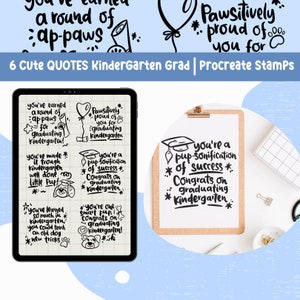 you've earned
a round of
ap-paws
Pawsitively
proud of
you for
6 Cute QUOTES Kindergarten Grad | Procreate Stamps
you've earned
a round of
ap-paws
for
graduating
kindergarten
Pawsitively
proud of
you for
graduating
kindergarten
you've made
it through
kindergarten
well done
little pup!
you're a
pup-sonification
of success
Congrats on
graduating
kindergarten
you've learned
so much in
kindergarten,
you could teach
an old dog
new tricks
you're one
smart pup!
congrats on
graduating
kindergarten!
you're a
pup-sonification
of success
Congrats on
graduating
kindergarten.